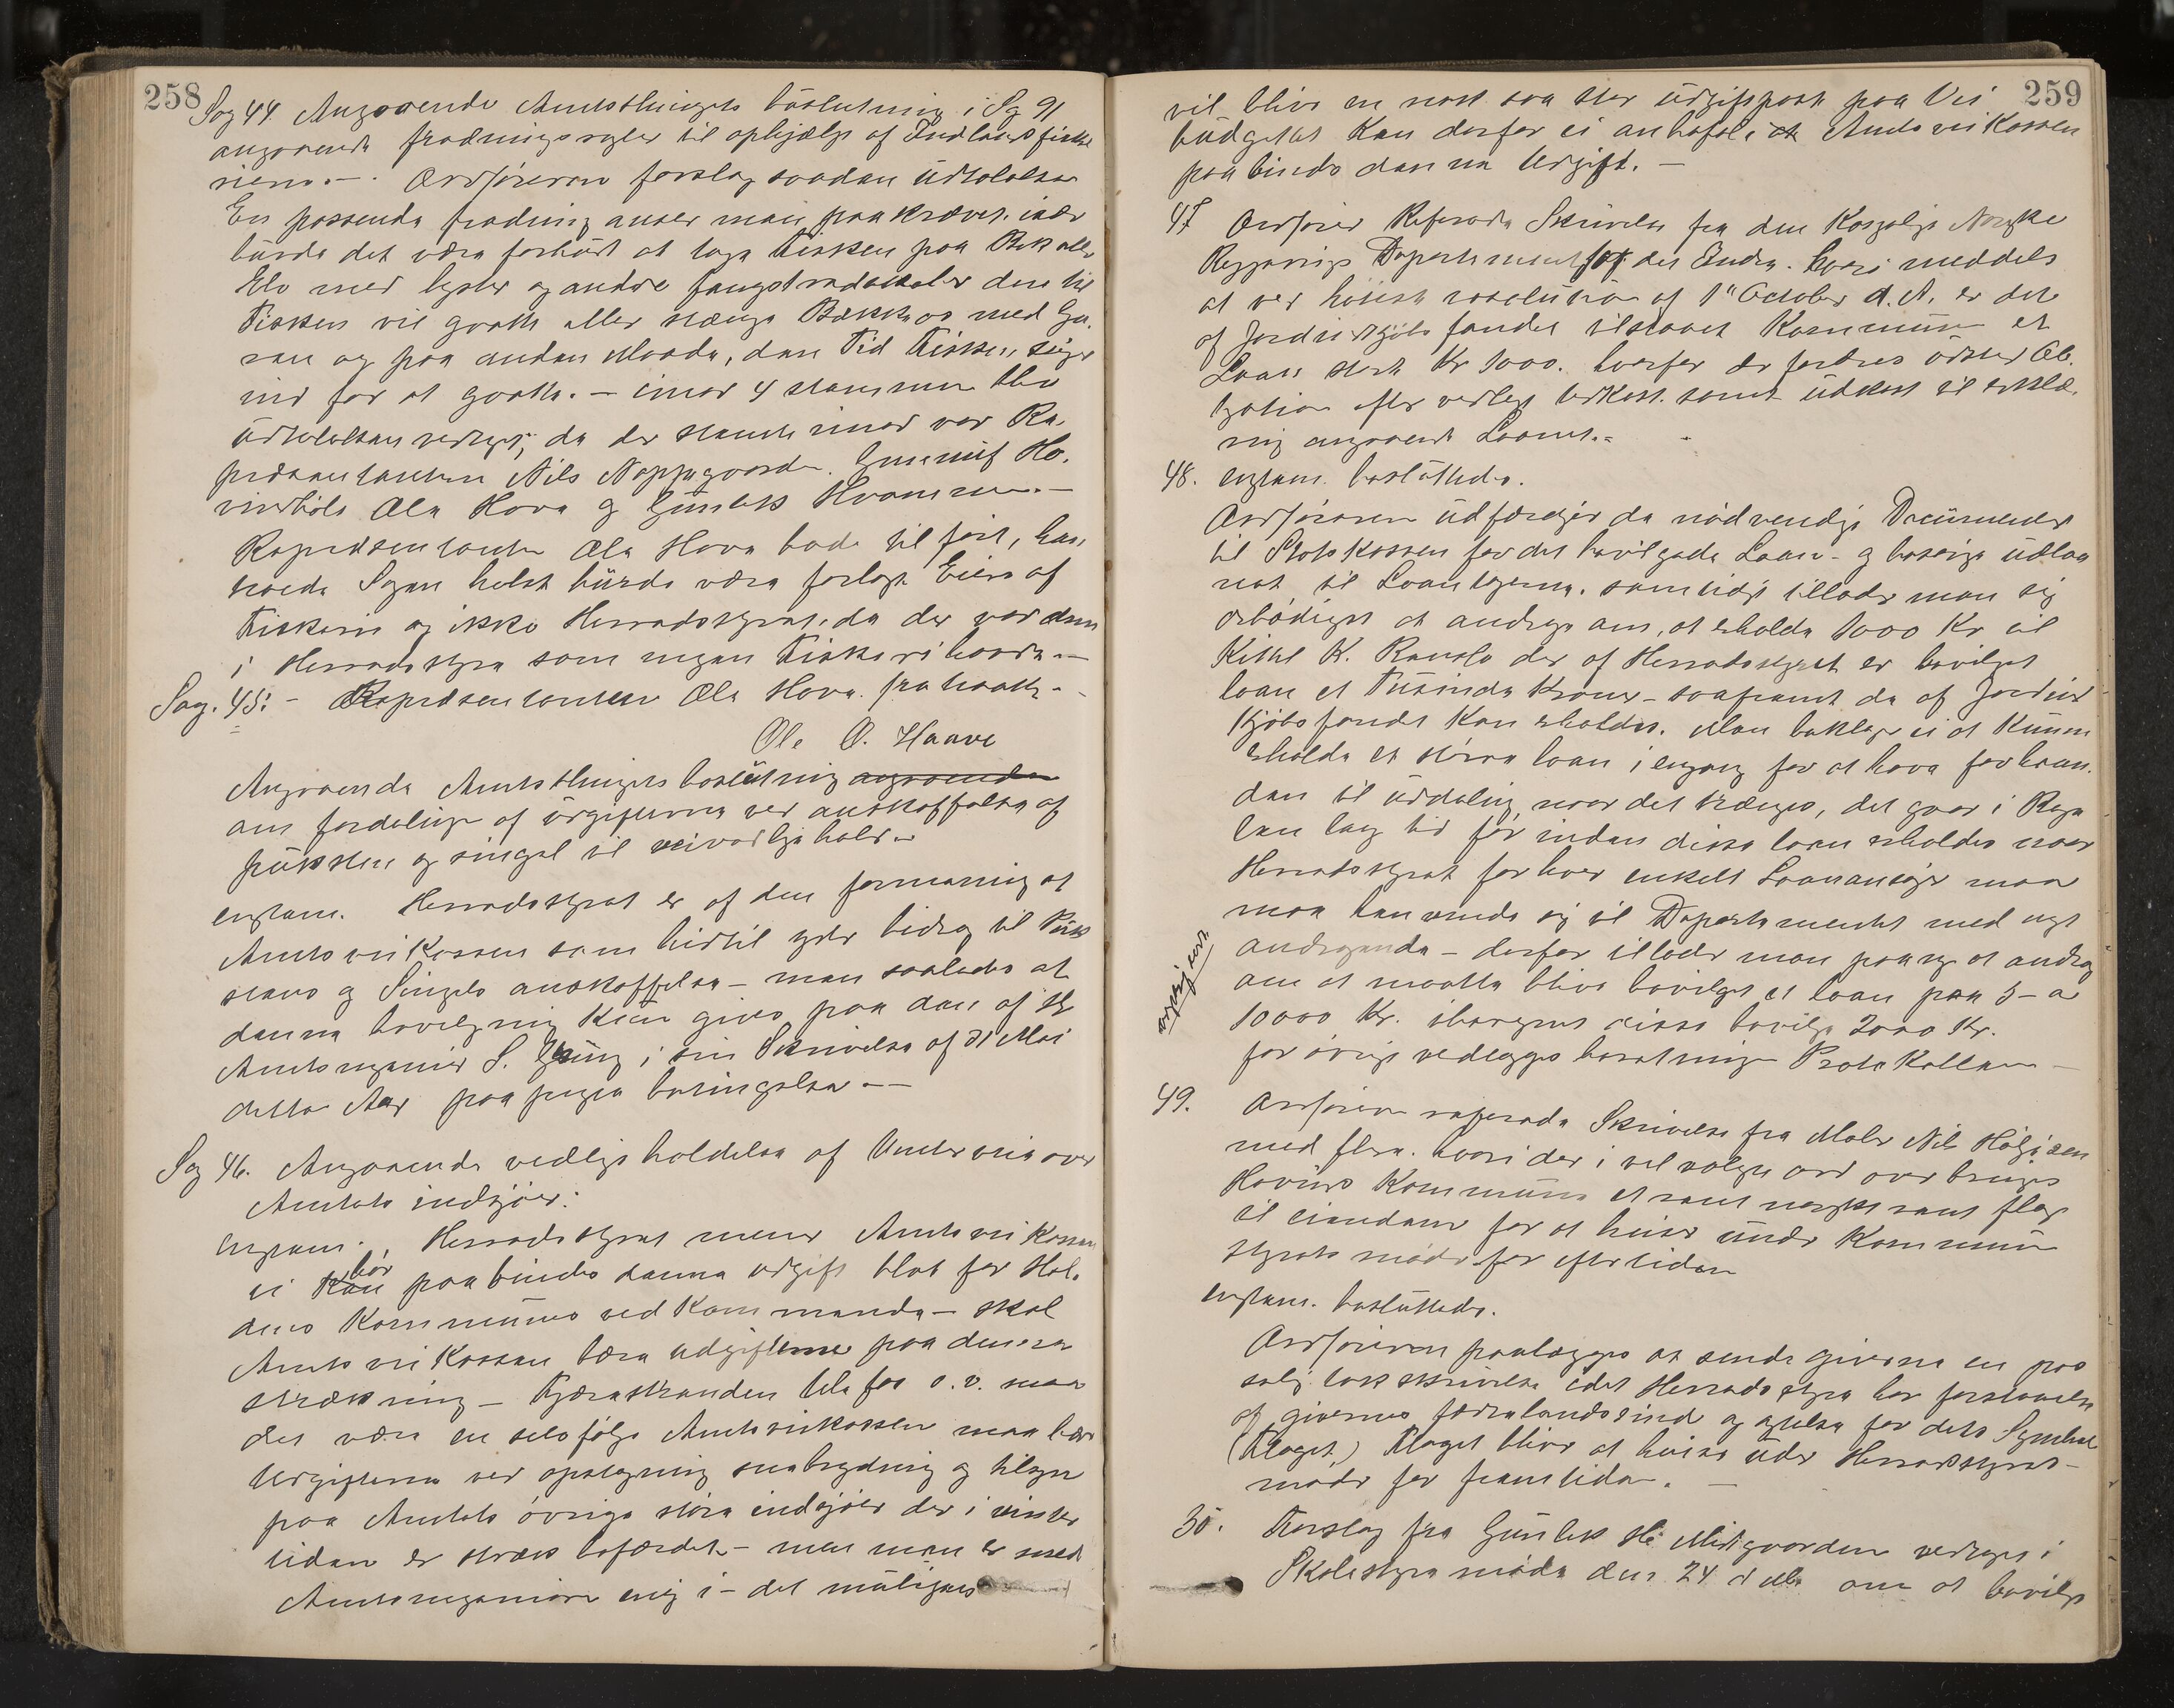 258
Sag 44. Angaaende Amtsthingets beslutning i Sag 91
angaaende fredningsregler til ophjælp af Indlandsfiske
rierne. — Ordføreren foreslog saadan udtalelse
En passende fredning anser man paakrævet. især
burde det være forbudt at tage Fisken paa Bæk eller
Elv med lyster og andre fangstredskaber den til
Fisken vil gaate eller stænge Bækkeos med Ga.
ren og paa anden Maade, den Tid Fisken søger
ind for at gaate. — imod 4 stemmer blev
udtalelsen vedtaget, da der stemte imod var Re.
præsentanterne Nils Nappegaarden. Ho.
vindbøle Ole Hova og Gunleik Hvammen. —
Repræsentanten Ole Hova bade til ført, han
troede Sagen helst burde være forlagt Eiere af
Fiskeri og ikke Herredsstyret. da der var dem
i Herredsstyre som ingen Fiskeri havde. —
Sag. 45: — Repræsentanten Ole Hova. fratraadte. —
Ole O. Haave
Angaaende Amtsthingets beslutning angaaende
om fordelingen af udgifterne ved anskaffelse af
puksten og singel til veivedligehold. —
enstem. Herredsstyret er af den formening at
Amtsveikassen som hidtil yder bidrag til Puk
stens og Singels anskaffelse — man saaledes at
denne bevilgning kun gives paa den af Hr
Amtsingeniør S. i sin Skrivelse af 31 Mai
dette Aar paapegte betingelse. —
Sag 46. Angaaende vedligeholdelse af Vinterveie over
Amtets indsjøer:
enstem. Herredsstyret mener Amtsveikassen
bør
ei Kan paabindes denne udgift blot for Hol.
dens Kommunes vedkommende — skal
Amtsveikassen bære udgifterne paa denne
strækning — Fjærestranden Ulefos o. v. maa
det være en selvfølge Amtsveikassen maa bære
Udgifterne ved opstegning snebrydning og tilsyn
paa Amtets øvrige støre indsjøer der i vinter
tiden er stræk befærdet — men man er med
Amtsingeniøren enig i — det muligens
259
vil blive en nært saa stor udgiftspost paa Vei
budgettet Kan derfor ei anbefale at Amtsveikassen
paabindes denne Udgift. —
47 Ordfører Refererede Skrivelse fra den Kongelige Norske
Regjerings Departement for det Indre. hvori meddels
at ved høieste resolution af 1ste October d. A. er det
af Jordindkjøbsfondet tilstaaet Kommunen et
Laan stort Kr 1000. hvorfor der fordres udsted Ob.
ligation efter vedlagt Udkast. samt udkast til erklæ.
ring angaaende Laanet. —
48. enstem. besluttedes.
Ordføreren udfærdiger de nødvendige Documenter
til Statskassen for det bevilgede Laan — og besørge udlaa
net til Laantagerne. samtidig tillader man sig
ærbødigst at andrage om, at erholde 1000 Kr til
Kittel K. Rauslo der af Herredsstyret er bevilget
laan et Tusinde Kroner — saafremt de af Jordind
kjøbsfondet Kan erholdes. Man beklager ei at Kunne
erholde et større laan i engang for at have forhaan.
den til uddeling, naar det trænges, det gaar i Rege
len lang tid før, inden disse laan erholdes naar
Herredsstyret for hver enkelt Laanansøger maa
maa henvende sig til Departementet med nyt
andragende — derfor tillader man paa ny at andrage
om at maatte blive bevilget et laan paa 5 — a
10000 Kr. iberegnet disse bevilgede 2000 Kr.
for øvrigt vedlægges beretninger Protokollen —
49. Ordføreren refererede Skrivelse fra Maler Nils Helgesen
med flere. hvori der i vel valgte ord overbringes
Hovins Kommune et rent norsk flag
til eiendom for at heise under Kommune
styrets møder for eftertiden
enstem. besluttedes.
Ordføreren paalægges at sende giverne en pas
selig takskrivelse idet Herredsstyre har forstaaelse
af givernes fædrelandssind og agtelse for dets Symbol
(Flaget.) Flaget bliver at heise under Herredsstyrets
møder for fremtiden. —
50. Forslag fra Gunleik H. Midtgaarden vedtaget i
Skolestyremøde den 24 d M. om at bevilge